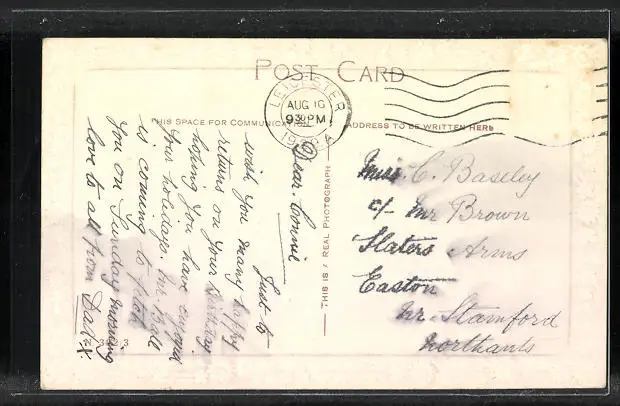 POST CARD
LEICESTER
AUG 16
930 PM
THIS SPACE FOR COMMUNICATION
ADDRESS TO BE WRITTEN HERE
THIS IS A REAL PHOTOGRAPH
Dear. Connie
Just to
wish you many happy
returns on your Birthday.
hoping you have enjoyed
your holidays. Mr. Hall
is coming to fetch
you on Sunday morning
love to all from Dad X
Miss C. Baseley
c/- Mr Brown
Slaters Arms
Easton
Nr. Stamford
Northants